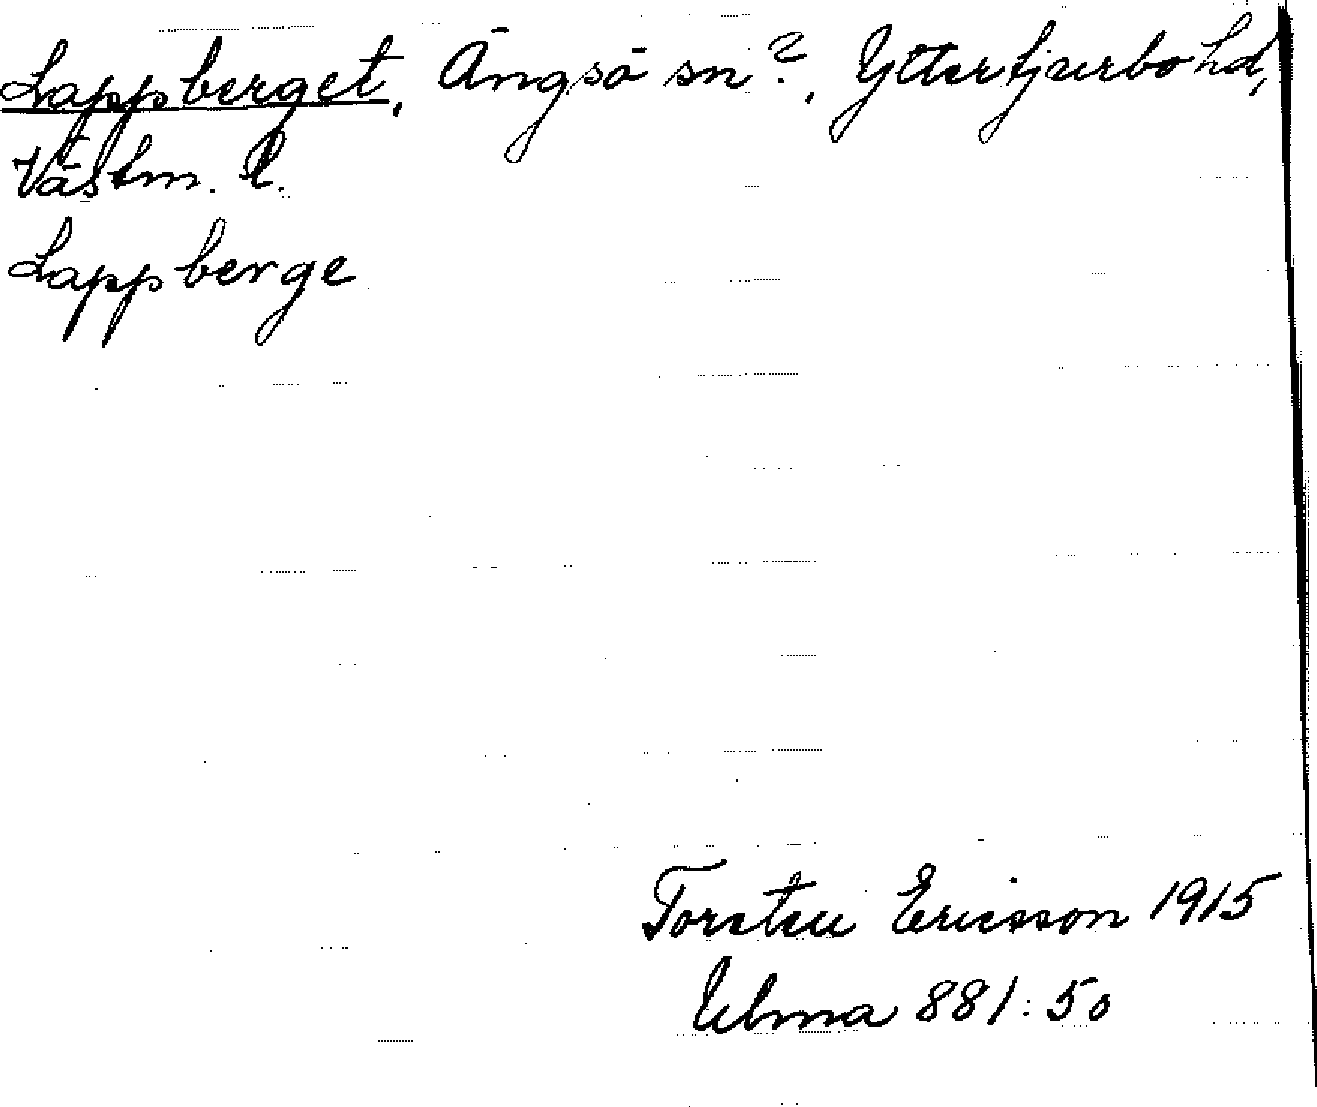 Lappberget, Ängsö sn?, Ytterfjurbo hd,
Västm. l.
Lappberge
Torsten Ericsson 1915
Ulma 881:50